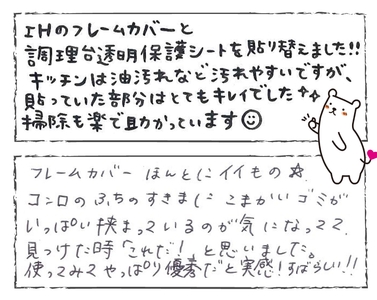 IHのフレームカバーと
調理台透明保護シートを貼り替えました!!
キッチンは油汚れなど汚れやすいですが、
貼っていた部分はとてもキレイでした✧✧
掃除も楽で助かっています☺
フレームカバー ほんとにイイもの☆
コンロのふちのすきまに こまかいゴミが
いっぱい挟まっているのが気になってて
見つけた時「これだ!」と思いました。
使ってみて やっぱり優秀だと実感!すばらしい!!